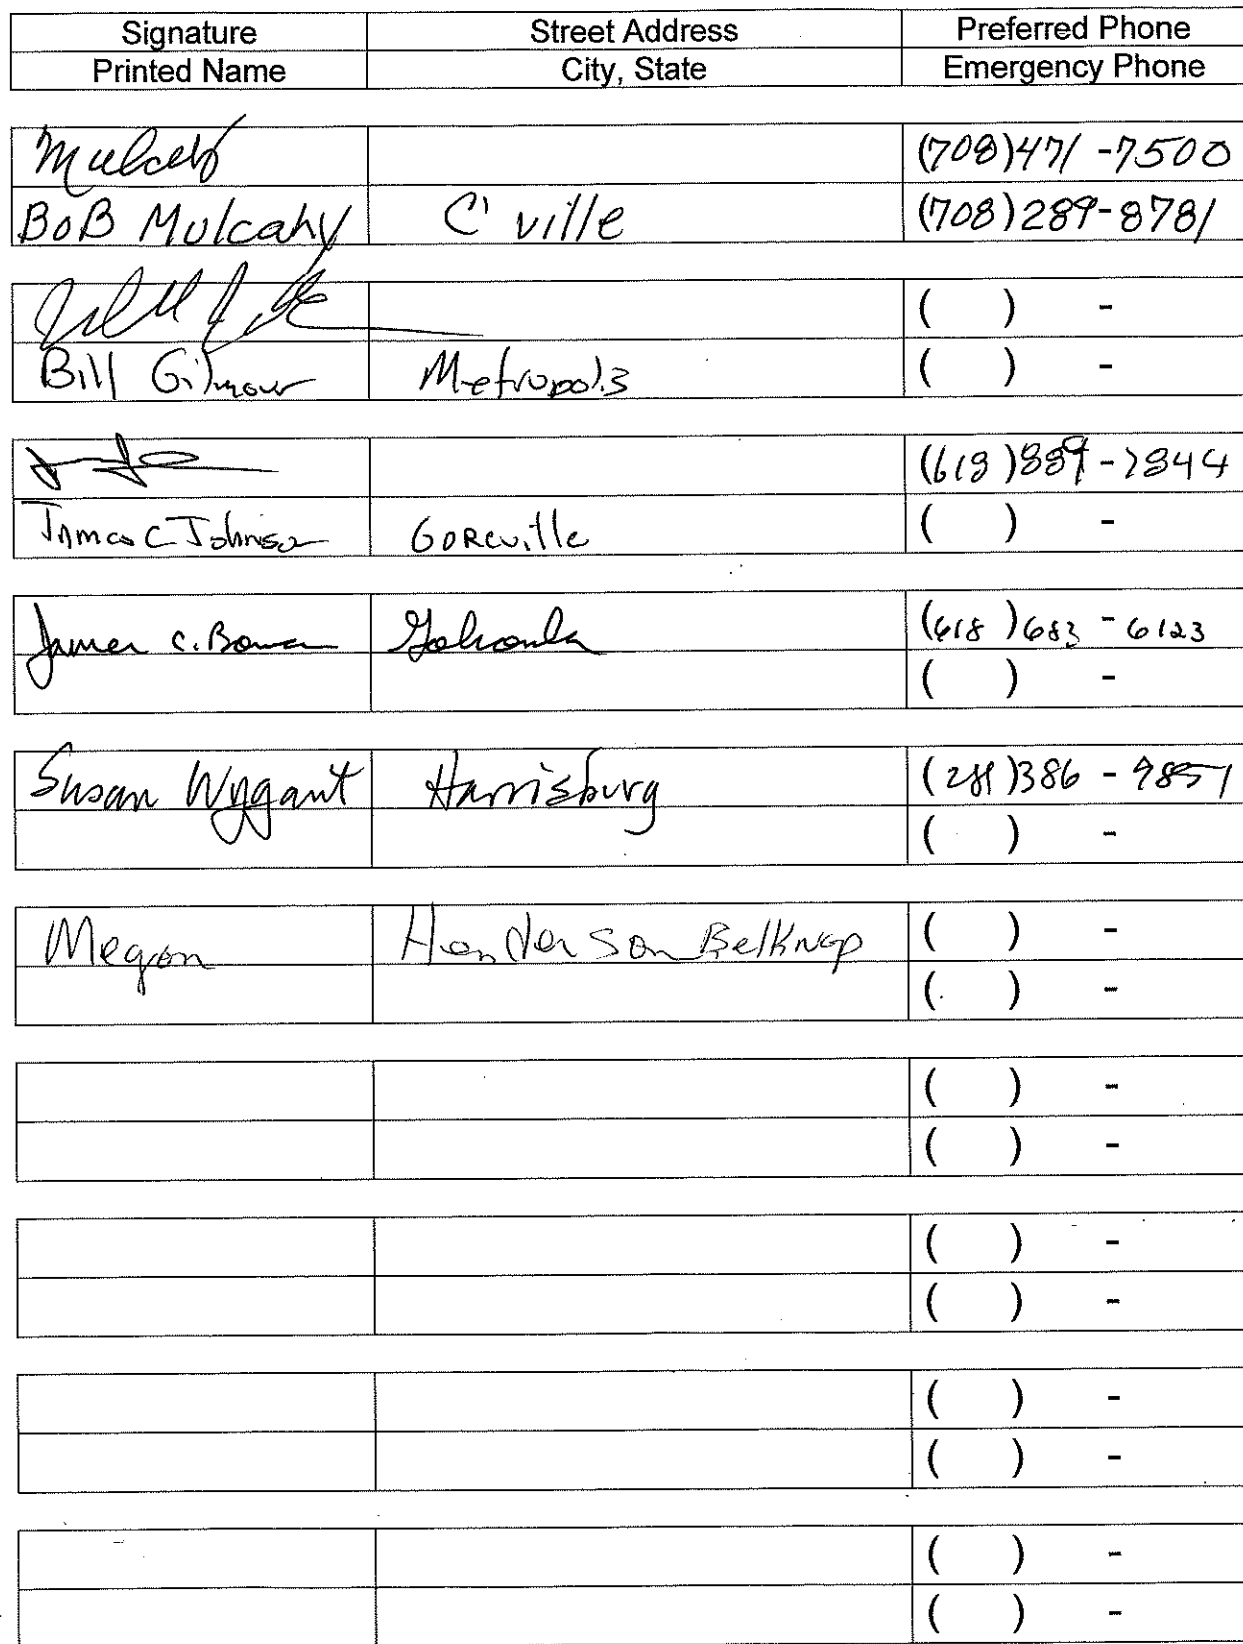 Signature Street Address Preferred Phone
Printed Name City, State Emergency Phone
Mulcahy (708)471-7500
BoB Mulcahy C'ville (708)289-8781
( ) -
Bill Gilmour Metropolis ( ) -
(618)889-7844
James C Johnson Goreville ( ) -
James C. Bowman Golconda (618)683-6123
( ) -
Susan Wygant Harrisburg (281)386-9851
( ) -
Megan Henderson Belknap ( ) -
( ) -
( ) -
( ) -
( ) -
( ) -
( ) -
( ) -
( ) -
( ) -